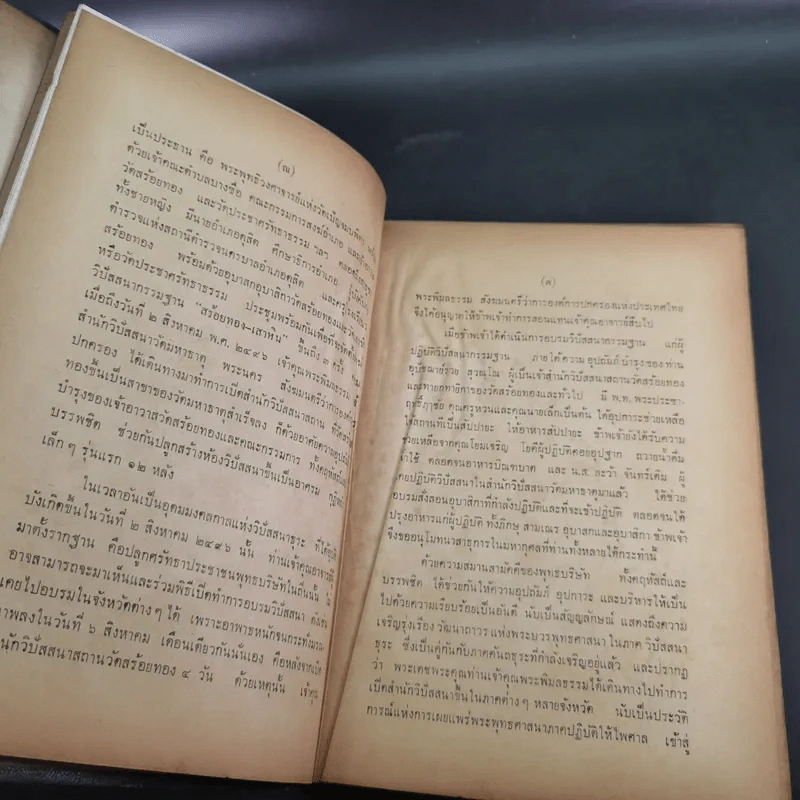 (ณ)
เป็นประธาน คือ พระพุทธิวงศาจารย์แห่งวัดเบ็ญจมบพิตร
ด้วยเจ้าคณะตำบลบางซื่อ คณะกรรมการสงฆ์อำเภอ และเจ้าอาวาส
วัดสร้อยทอง และวัดประชาศรัทธาธรรม ฯลฯ ตลอดถึง
ทั้งชายหญิง มีนายอำเภอดุสิต ศึกษาธิการอำเภอ
ตำรวจแห่งสถานีตำรวจนครบาลอำเภอดุสิต และครู
สร้อยทอง พร้อมด้วยอุบาสกอุบาสิกาวัดสร้อยทองและวัด
หรือวัดประชาศรัทธาธรรม ประชุมพร้อมกันเพื่อที่จะจัดตั้ง
วิปัสสนากรรมฐาน "สร้อยทอง-เสาหิน" ขึ้นถึง ๓ ครั้ง
เมื่อถึงวันที่ ๒ สิงหาคม พ.ศ. ๒๔๙๖ เจ้าคุณพระพิมลธรรม
สำนักวิปัสสนาวัดมหาธาตุ พระนคร สังฆมนตรีว่าการองค์การ
ปกครอง ได้เดินทางมาทำการเปิดสำนักวิปัสสนาสถาน ที่วัดสร้อย
ทองขึ้นเป็นสาขาของวัดมหาธาตุสำเร็จลง ก็ด้วยอาศัยความอุปถัมภ์
บำรุงของเจ้าอาวาสวัดสร้อยทองและคณะกรรมการ ทั้งคฤหัสถ์และ
บรรพชิต ช่วยกันปลูกสร้างห้องวิปัสสนาขึ้นเป็นอาศรม กุฎิ
เล็ก ๆ รุ่นแรก ๑๒ หลัง
ในเวลาอันเป็นอุดมมงคลกาลแห่งวิปัสสนาธุระ ที่ได้อุบัติ
บังเกิดขึ้นในวันที่ ๒ สิงหาคม ๒๔๙๖ นั้น ท่านเจ้าคุณอาจารย์
มาตั้งรากฐาน คือปลูกศรัทธาประชาชนพุทธบริษัทในถิ่นนั้น ไม่
อาจสามารถจะมาเห็นและร่วมพิธีเปิดทำการอบรมวิปัสสนา ดังเช่น
เคยไปอบรมในจังหวัดต่าง ๆ ได้ เพราะอาพาธหนักจนกระทั่งมรณ
ภาพลงในวันที่ ๖ สิงหาคม เดือนเดียวกันนั่นเอง คือหลังจากเปิด
สำนักวิปัสสนาสถานวัดสร้อยทอง ๔ วัน ด้วยเหตุนั้น เจ้าคุณ
(ด)
พระพิมลธรรม สังฆมนตรีว่าการองค์การปกครองแห่งประเทศไทย
จึงได้อนุญาตให้ข้าพเจ้าทำการสอนแทนเจ้าคุณอาจารย์สืบไป
เมื่อข้าพเจ้าได้ดำเนินการอบรมวิปัสสนากรรมฐาน แก่ผู้
ปฏิบัติวิปัสสนากรรมฐาน ภายใต้ความอุปถัมภ์บำรุงของท่าน
อุปัชฌาย์รวย สุวณฺโณ ผู้เป็นเจ้าสำนักวิปัสสนาสถานวัดสร้อยทอง
และทายกทายิกาของวัดสร้อยทองและทั่วไป มี พ.ท. พระประชา-
ฤทธิ์ภาชัย คุณครูหวนและคุณนายเล็กเป็นต้น ได้อุปการะช่วยเหลือ
ให้สถานที่เป็นสัปปายะ ให้อาหารสัปปายะ ข้าพเจ้ายังได้รับความ
ช่วยเหลือจากคุณโยมเจริญ โยคีผู้ปฏิบัติคอยอุปัฎฐาก ถวายน้ำดื่ม
น้ำใช้ ตลอดจนอาหารบิณฑบาต และ น.ส. ละว้า จันทร์เดิม ผู้
เคยปฏิบัติวิปัสสนาในสำนักวิปัสสนาวัดมหาธาตุมาแล้ว ได้ช่วย
อบรมสั่งสอนอุบาสิกาที่กำลังปฏิบัติและที่จะเข้าปฏิบัติ ตลอดจนได้
ปรุงอาหารแก่ผู้ปฏิบัติ ทั้งภิกษุ สามเณร อุบาสกและอุบาสิกา ข้าพเจ้า
จึงขออนุโมทนาสาธุการในมหากุศลที่ท่านทั้งหลายได้กระทำนี้
ด้วยความสมานสามัคคีของพุทธบริษัท ทั้งคฤหัสถ์และ
บรรพชิต ได้ช่วยกันให้ความอุปถัมภ์ อุปการะ และบริหารให้เป็น
ไปด้วยความเรียบร้อยเป็นอันดี นับเป็นสัญญลักษณ์ แสดงถึงความ
เจริญรุ่งเรือง วัฒนาถาวร แห่งพระบวรพุทธศาสนา ในภาค วิปัสสนา
ธุระ ซึ่งเป็นคู่กันกับภาคคันถธุระที่กำลังเจริญอยู่แล้ว และปรากฏ
ว่า พระเดชพระคุณท่านเจ้าคุณพระพิมลธรรมได้เดินทางไปทำการ
เปิดสำนักวิปัสสนาขึ้นในภาคต่าง ๆ หลายจังหวัด นับเป็นประวัติ
การณ์แห่งการเผยแพร่พระพุทธศาสนาภาคปฏิบัติให้ไพศาล เข้าสู่